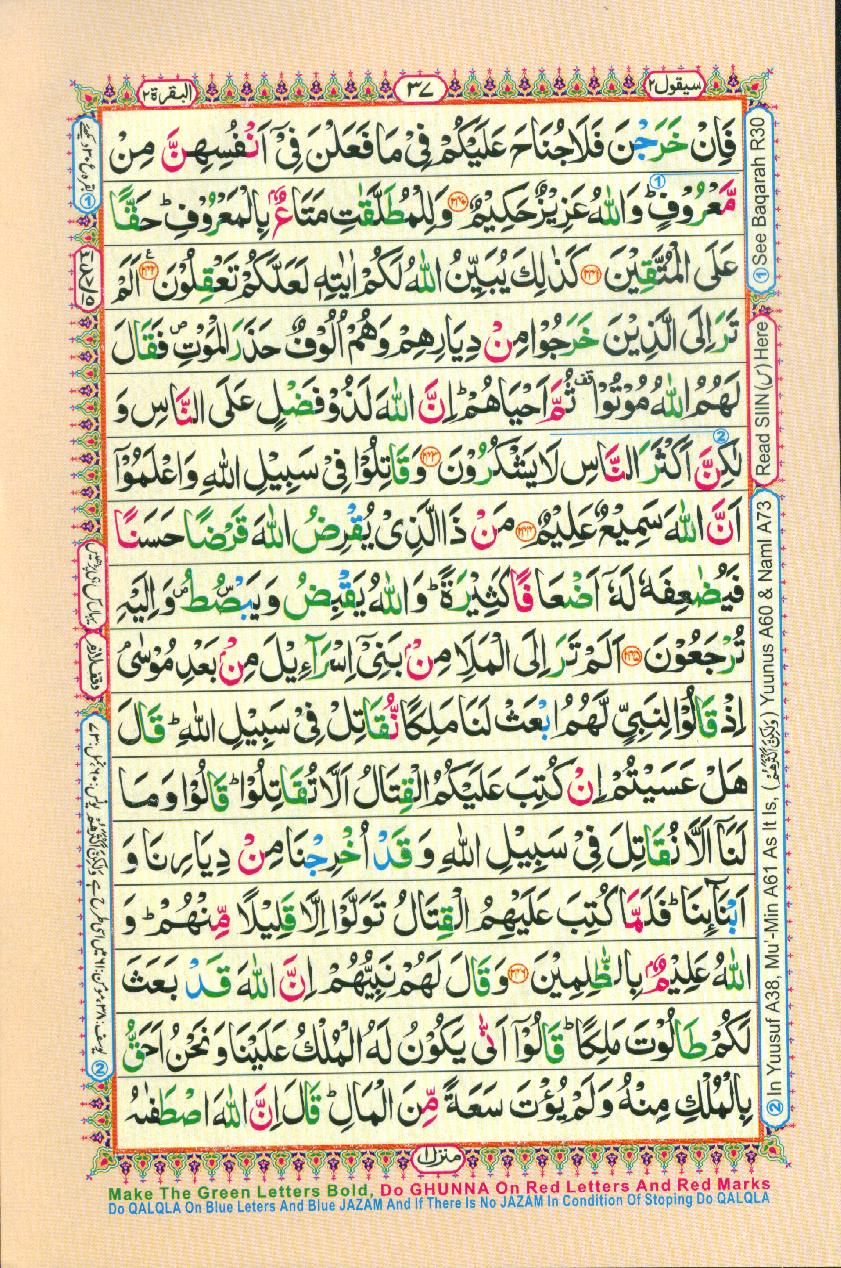 سيقول٢
٣٧
البقرة٢
فَاِنْ خَرَجْنَ فَلَا جُنَاحَ عَلَيْكُمْ فِىْ مَا فَعَلْنَ فِىْٓ اَنْفُسِهِنَّ مِنْ
مَّعْرُوْفٍؕ وَاللّٰهُ عَزِيْزٌ حَكِيْمٌ ﴿۲۴۰﴾ وَلِلْمُطَلَّقٰتِ مَتَاعٌۢ بِالْمَعْرُوْفِؕ حَقًّا
عَلَى الْمُتَّقِيْنَ ﴿۲۴۱﴾ كَذٰلِكَ يُبَيِّنُ اللّٰهُ لَكُمْ اٰيٰتِهٖ لَعَلَّكُمْ تَعْقِلُوْنَ ﴿۲۴۲﴾ اَلَمْ
تَرَ اِلَى الَّذِيْنَ خَرَجُوْا مِنْ دِيَارِهِمْ وَهُمْ اُلُوْفٌ حَذَرَ الْمَوْتِ۪ فَقَالَ
لَهُمُ اللّٰهُ مُوْتُوْا۫ ثُمَّ اَحْيَاهُمْؕ اِنَّ اللّٰهَ لَذُوْ فَضْلٍ عَلَى النَّاسِ وَ
لٰكِنَّ اَكْثَرَ النَّاسِ لَا يَشْكُرُوْنَ ﴿۲۴۳﴾ وَقَاتِلُوْا فِىْ سَبِيْلِ اللّٰهِ وَاعْلَمُوْٓا
اَنَّ اللّٰهَ سَمِيْعٌ عَلِيْمٌ ﴿۲۴۴﴾ مَنْ ذَا الَّذِىْ يُقْرِضُ اللّٰهَ قَرْضًا حَسَنًا
فَيُضٰعِفَهٗ لَهٗٓ اَضْعَافًا كَثِيْرَةًؕ وَاللّٰهُ يَقْبِضُ وَيَبْصُۜطُ۪ وَاِلَيْهِ
تُرْجَعُوْنَ ﴿۲۴۵﴾ اَلَمْ تَرَ اِلَى الْمَلَاِ مِنْۢ بَنِىْٓ اِسْرَآءِيْلَ مِنْۢ بَعْدِ مُوْسٰىۘ
اِذْ قَالُوْا لِنَبِىٍّ لَّهُمُ ابْعَثْ لَنَا مَلِكًا نُّقَاتِلْ فِىْ سَبِيْلِ اللّٰهِؕ قَالَ
هَلْ عَسَيْتُمْ اِنْ كُتِبَ عَلَيْكُمُ الْقِتَالُ اَلَّا تُقَاتِلُوْاؕ قَالُوْا وَمَا
لَنَآ اَلَّا نُقَاتِلَ فِىْ سَبِيْلِ اللّٰهِ وَقَدْ اُخْرِجْنَا مِنْ دِيَارِنَا وَ
اَبْنَآئِنَاؕ فَلَمَّا كُتِبَ عَلَيْهِمُ الْقِتَالُ تَوَلَّوْا اِلَّا قَلِيْلًا مِّنْهُمْؕ وَ
اللّٰهُ عَلِيْمٌۢ بِالظّٰلِمِيْنَ ﴿۲۴۶﴾ وَقَالَ لَهُمْ نَبِيُّهُمْ اِنَّ اللّٰهَ قَدْ بَعَثَ
لَكُمْ طَالُوْتَ مَلِكًاؕ قَالُوْٓا اَنّٰى يَكُوْنُ لَهُ الْمُلْكُ عَلَيْنَا وَنَحْنُ اَحَقُّ
بِالْمُلْكِ مِنْهُ وَلَمْ يُؤْتَ سَعَةً مِّنَ الْمَالِؕ قَالَ اِنَّ اللّٰهَ اصْطَفٰىهُ
منزل١
① See Baqarah R30
Read SIIN (س) Here
② In Yuusuf A38, Mu'-Min A61 As It Is, (وَلٰكِنَّ اَكْثَرَهُمْ) Yuunus A60 & Naml A73
Make The Green Letters Bold, Do GHUNNA On Red Letters And Red Marks
Do QALQLA On Blue Leters And Blue JAZAM And If There Is No JAZAM In Condition Of Stoping Do QALQLA